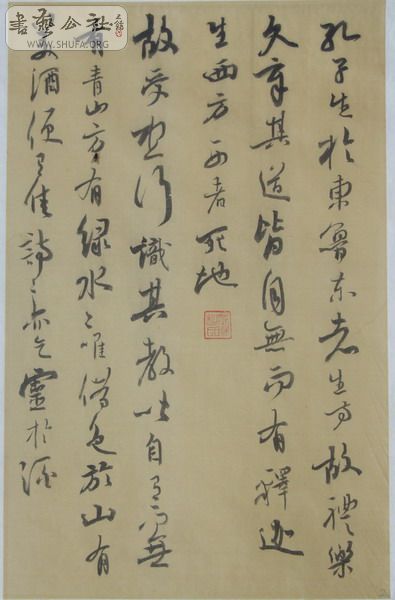 書藝公社
WWW.SHUFA.COM
孔子生於東魯東者生方故禮樂
文章其道皆自無而有釋迦
生西方西者死地
故受想行識其教皆自有而無
有青山方有綠水〻唯借色於山有
美酒便有佳詩〻亦乞靈於酒